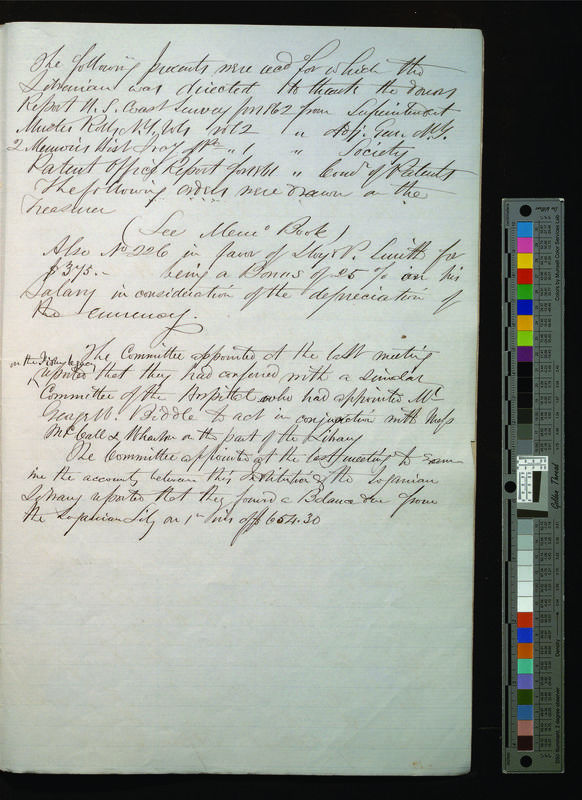 The following presents were read for which the
Librarian was directed to thank the donors
Report U.S. Coast Survey for 1862 from Superintendent
Muster Rolls N.Y. Vols " Adj. Gen. N.Y.
2 Memoirs Hist Socy of Pa " 1 " Society
Patent Office Report for 1861 " Comr of Patents
The following orders were drawn on the
Treasurer
(See Memo Book)
Also No 226 in favor of Lloyd P. Smith for
$375.- being a Bonus of 25 % on his
Salary in consideration of the depreciation of
the currency.
The Committee appointed at the last meeting
on the Fisher legacy
reported that they had conferred with a similar
Committee of the Hospital who had appointed Mr
George W. Biddle to act in conjunction with Messrs
McCall & Wharton on the part of the Library
The Committee appointed at the last meeting to exam-
ine the accounts between this Institution & the Loganian
Library reported that they found a Balance due from
the Loganian Liby on 1st inst of $654.30